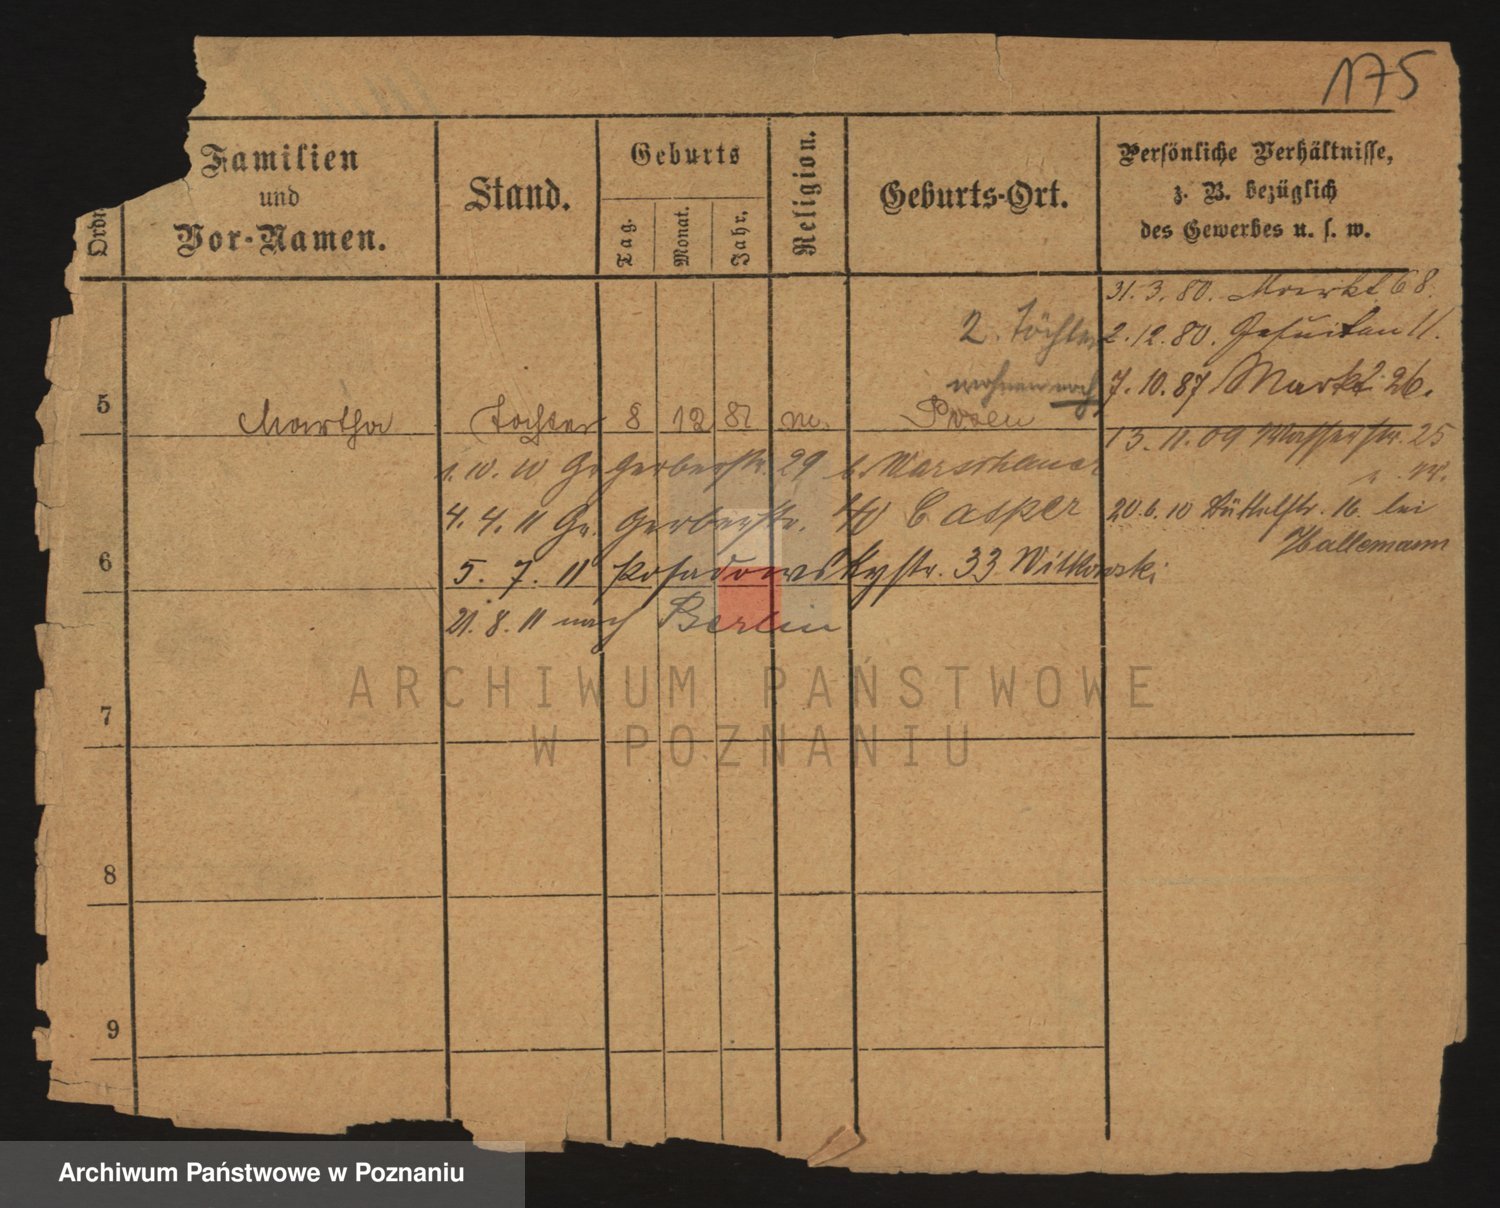 175
Ordn
Familien
und
Vor-Namen.
Stand.
Geburts
Tag. Monat. Jahr.
Religion.
Geburts-Ort.
Persönliche Verhältnisse,
z. B. bezüglich
des Gewerbes u. s. w.
31. 3. 80. Markt 68.
2. Töchter
2. 12. 80. Jesuiten 11.
wohnen noch
7. 10. 87 Markt 26.
5 Martha Tochter 8 12 81 m. Posen
13. 11. 09 Wasserstr. 25
1. 10. 10 Gr Gerberstr. 29 b. Warschauer
4. 4. 11 Gr. Gerberstr. 40 Casper
20. 6. 10 Büttelstr. 16. bei
Hallemann
6 5. 7. 11 Posadowskystr. 33 Witkowski
21. 8. 11 nach Berlin
7
8
9
ARCHIWUM PAŃSTWOWE
W POZNANIU
Archiwum Państwowe w Poznaniu